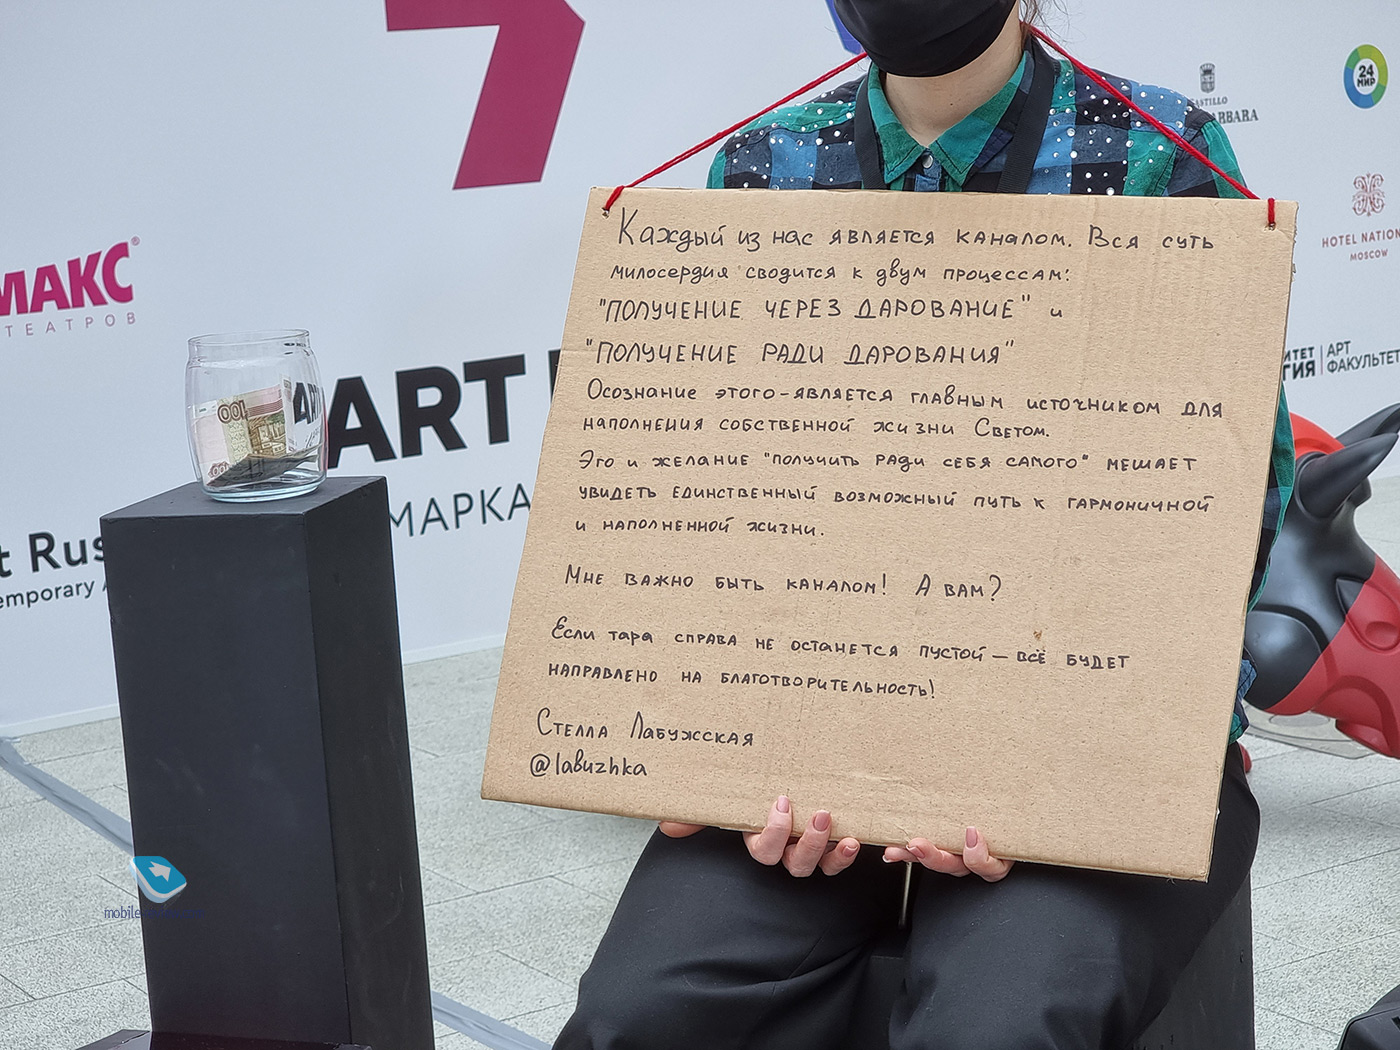 МАКС
ТЕАТРОВ
100
ART
МАРКА
t Rus
emporary A
CASTILLO
ARBARA
24
МИР
HOTEL NATION
MOSCOW
ИТЕТ
ГИЯ
АРТ
ФАКУЛЬТЕТ
Каждый из нас является каналом. Вся суть
милосердия сводится к двум процессам:
"ПОЛУЧЕНИЕ ЧЕРЕЗ ДАРОВАНИЕ" и
"ПОЛУЧЕНИЕ РАДИ ДАРОВАНИЯ"
Осознание этого-является главным источником для
наполнения собственной жизни Светом.
Эго и желание "получить ради себя самого" мешает
увидеть единственный возможный путь к гармоничной
и наполненной жизни.
Мне важно быть каналом! А вам?
Если тара справа не останется пустой — всё будет
направлено на благотворительность!
Стелла Лабужская
@labuzhka